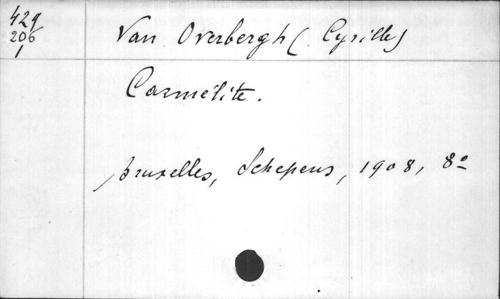 429
206
1
Van Overbergh (Cyrille)
Carmélite.
Bruxelles, Schepens, 1908, 8º